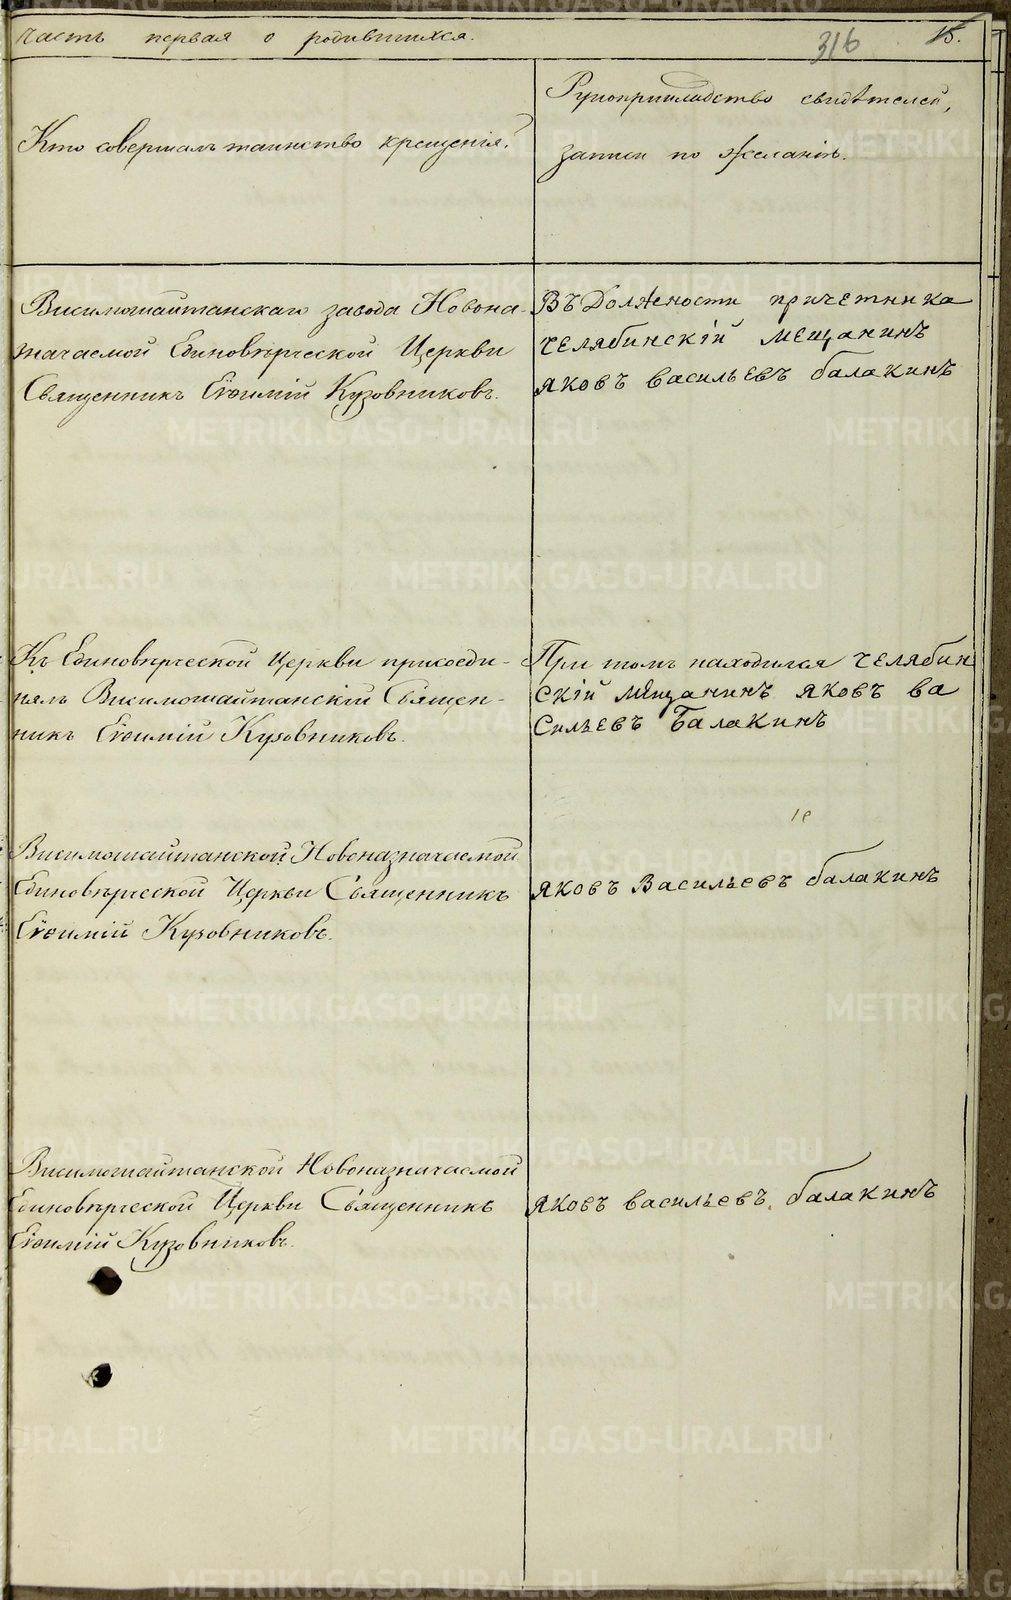 Часть первая о родившихся.
316
15.
Кто совершалъ таинство крещенія?
Рукоприкладство свидѣтелей,
записи по желанію.
Висимошайтанскаго завода Новона-
значаемой Единовѣрческой Церкви
Священникъ Евѳимій Кузовниковъ.
Въ Должности причетника
челябинскій мещанинъ
яковъ васильевъ балакинъ
Къ Единовѣрческой Церкви присоеди-
нялъ Висимошайтанскій Священ-
никъ Евѳимій Кузовниковъ.
При томъ находился челябин
скій мещанинъ яковъ ва
сильевъ Балакинъ
Висимошайтанской Новоназначаемой
Единовѣрческой Церкви Священникъ
Евѳимій Кузовниковъ.
яковъ Васильевъ балакинъ
Висимошайтанской Новоназначаемой
Единовѣрческой Церкви Священникъ
Евѳимій Кузовниковъ.
яковъ васильевъ. балакинъ
METRIKI.GASO-URAL.RU